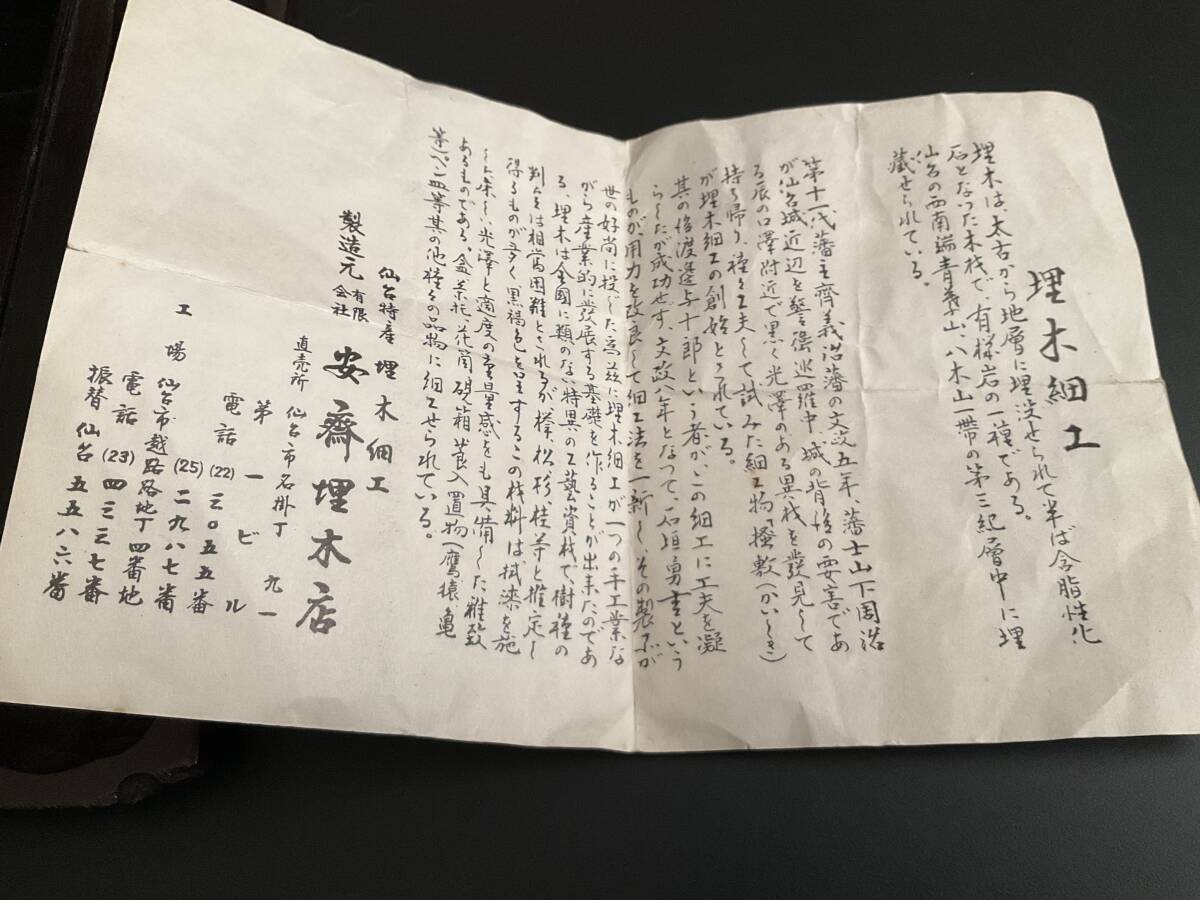 埋木細工
埋木は、太古から地層に埋没せられて半ば含脂性化
石となった木材で、有様岩の一種である。
仙台の西南端青葉山、八木山一帯の第三紀層中に埋
蔵せられている。
第十一代藩主齊義治藩の文政五年、藩士山下周治
が仙台城近辺を警衛巡羅中、城の背後の要害であ
る辰の口澤附近で黒く光澤のある異材を發見して
持ち帰り、種々工夫して試みた細工物「掻敷(かいしき)
が埋木細工の創始とされている。
其の後渡邊与十郎という者が、この細工に工夫を凝
らしたが成功せず、文政八年となって、石垣勇吉という
ものが、用力を改良して細工法を一新し、その製品が
世の好尚に投じた為茲に埋木細工が一つの手工業な
がら産業的に發展する基礎を作ることが出来たのであ
る、埋木は全国に類のない特異の工藝資材で、樹種の
判んは相当困難とされるが欅、松、杉、桂等と推定し
得るものが多く、黒褐色を呈するこの材料は拭漆を施
し、光澤と適度の重量感をも具備した雅致
あるものである、盆、茶托、花筒、硯箱、莨入、置物(鷹、猿、亀
等)ペン皿等其の他種々の品物に細工せられている。
仙台特産 埋木細工
製造元 有限会社 安齋埋木店
直売所 仙台市名掛丁九一
第一ビル
電話(22)三〇五五番
工場 仙台市越路路地丁四番地
(25)二九八七番
電話(23)四三三七番
振替 仙台五五八六番